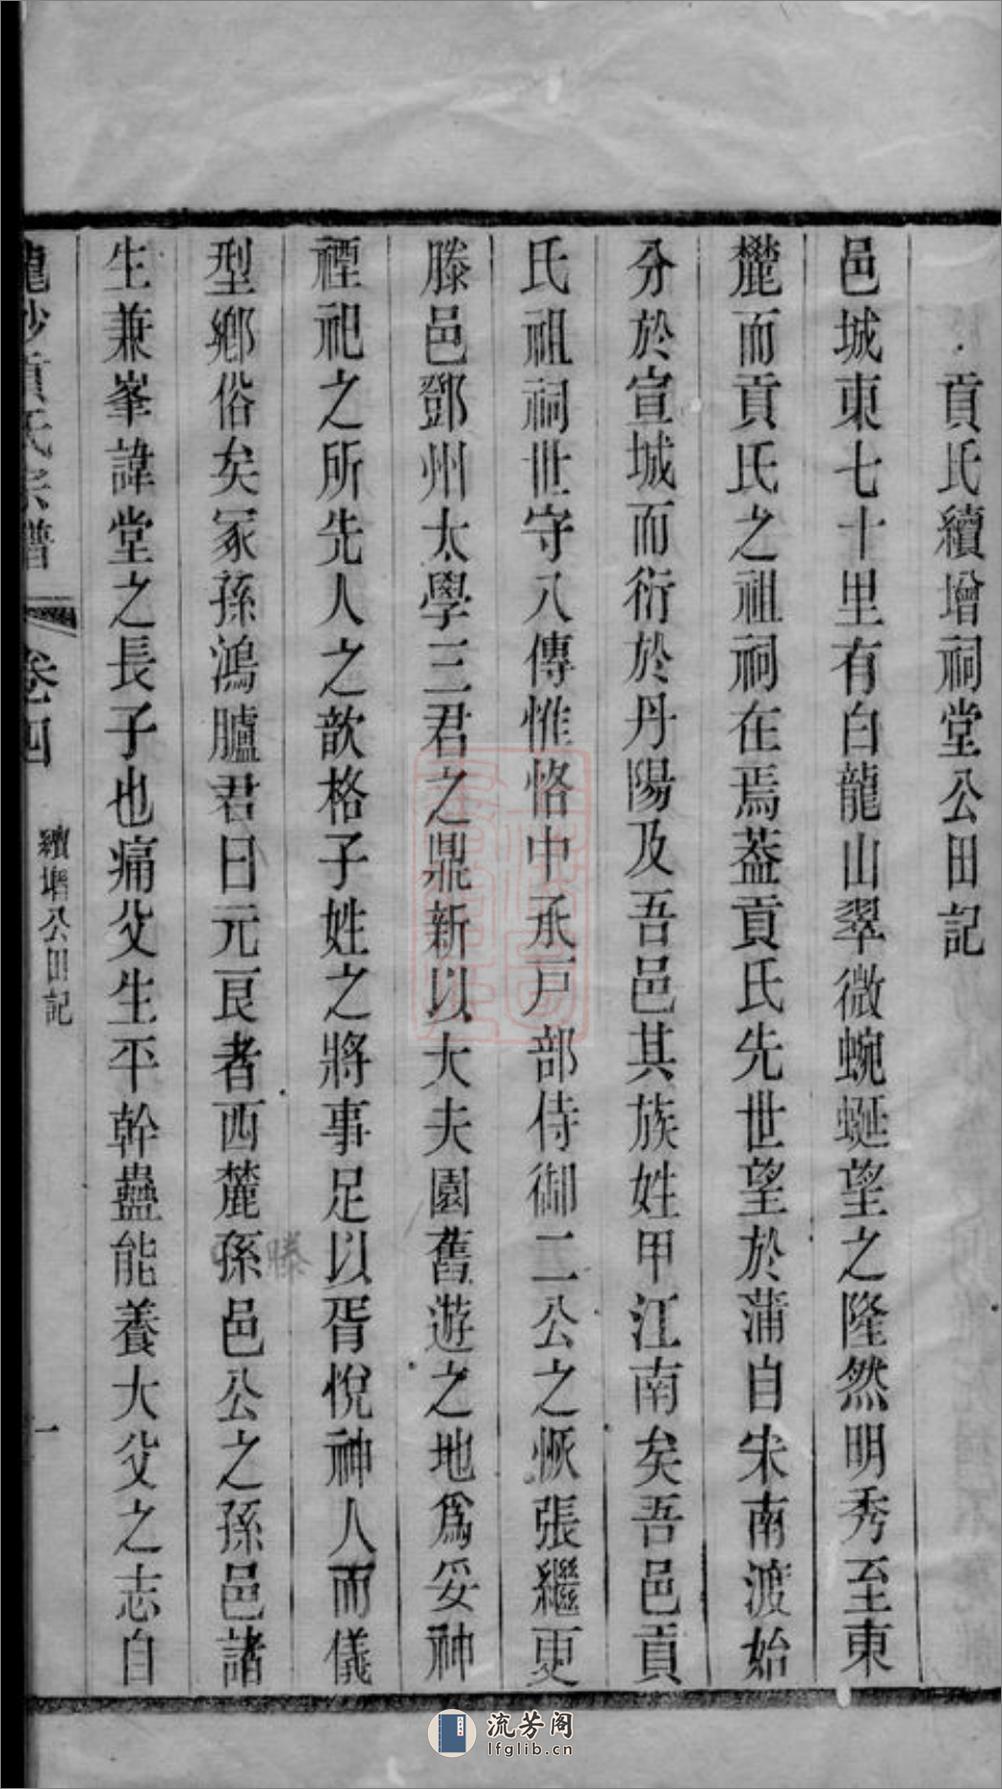 貢氏續增祠堂公田記
邑城東七十里有白龍山翠微蜿蜒望之隆然明秀至東
麓而貢氏之祖祠在焉葢貢氏先世望於蒲自宋南渡始
分於宣城而衍於丹陽及吾邑其族姓甲江南矣吾邑貢
氏祖祠世守八傳惟恪中承戸部侍御二公之恢張繼更
滕邑鄧州太學三君之鼎新以大夫園舊遊之地爲妥神
禋祀之所先人之歆格子姓之將事足以胥悅神人而儀
型鄉俗矣冢孫鴻臚君曰元良者西麓孫邑公之孫邑諸
滕
生兼峯諱堂之長子也痛父生平幹蠱能養大父之志自
龍砂貢氏宗譜 卷四 續增公田記 一
流芳阁
lfglib.cn